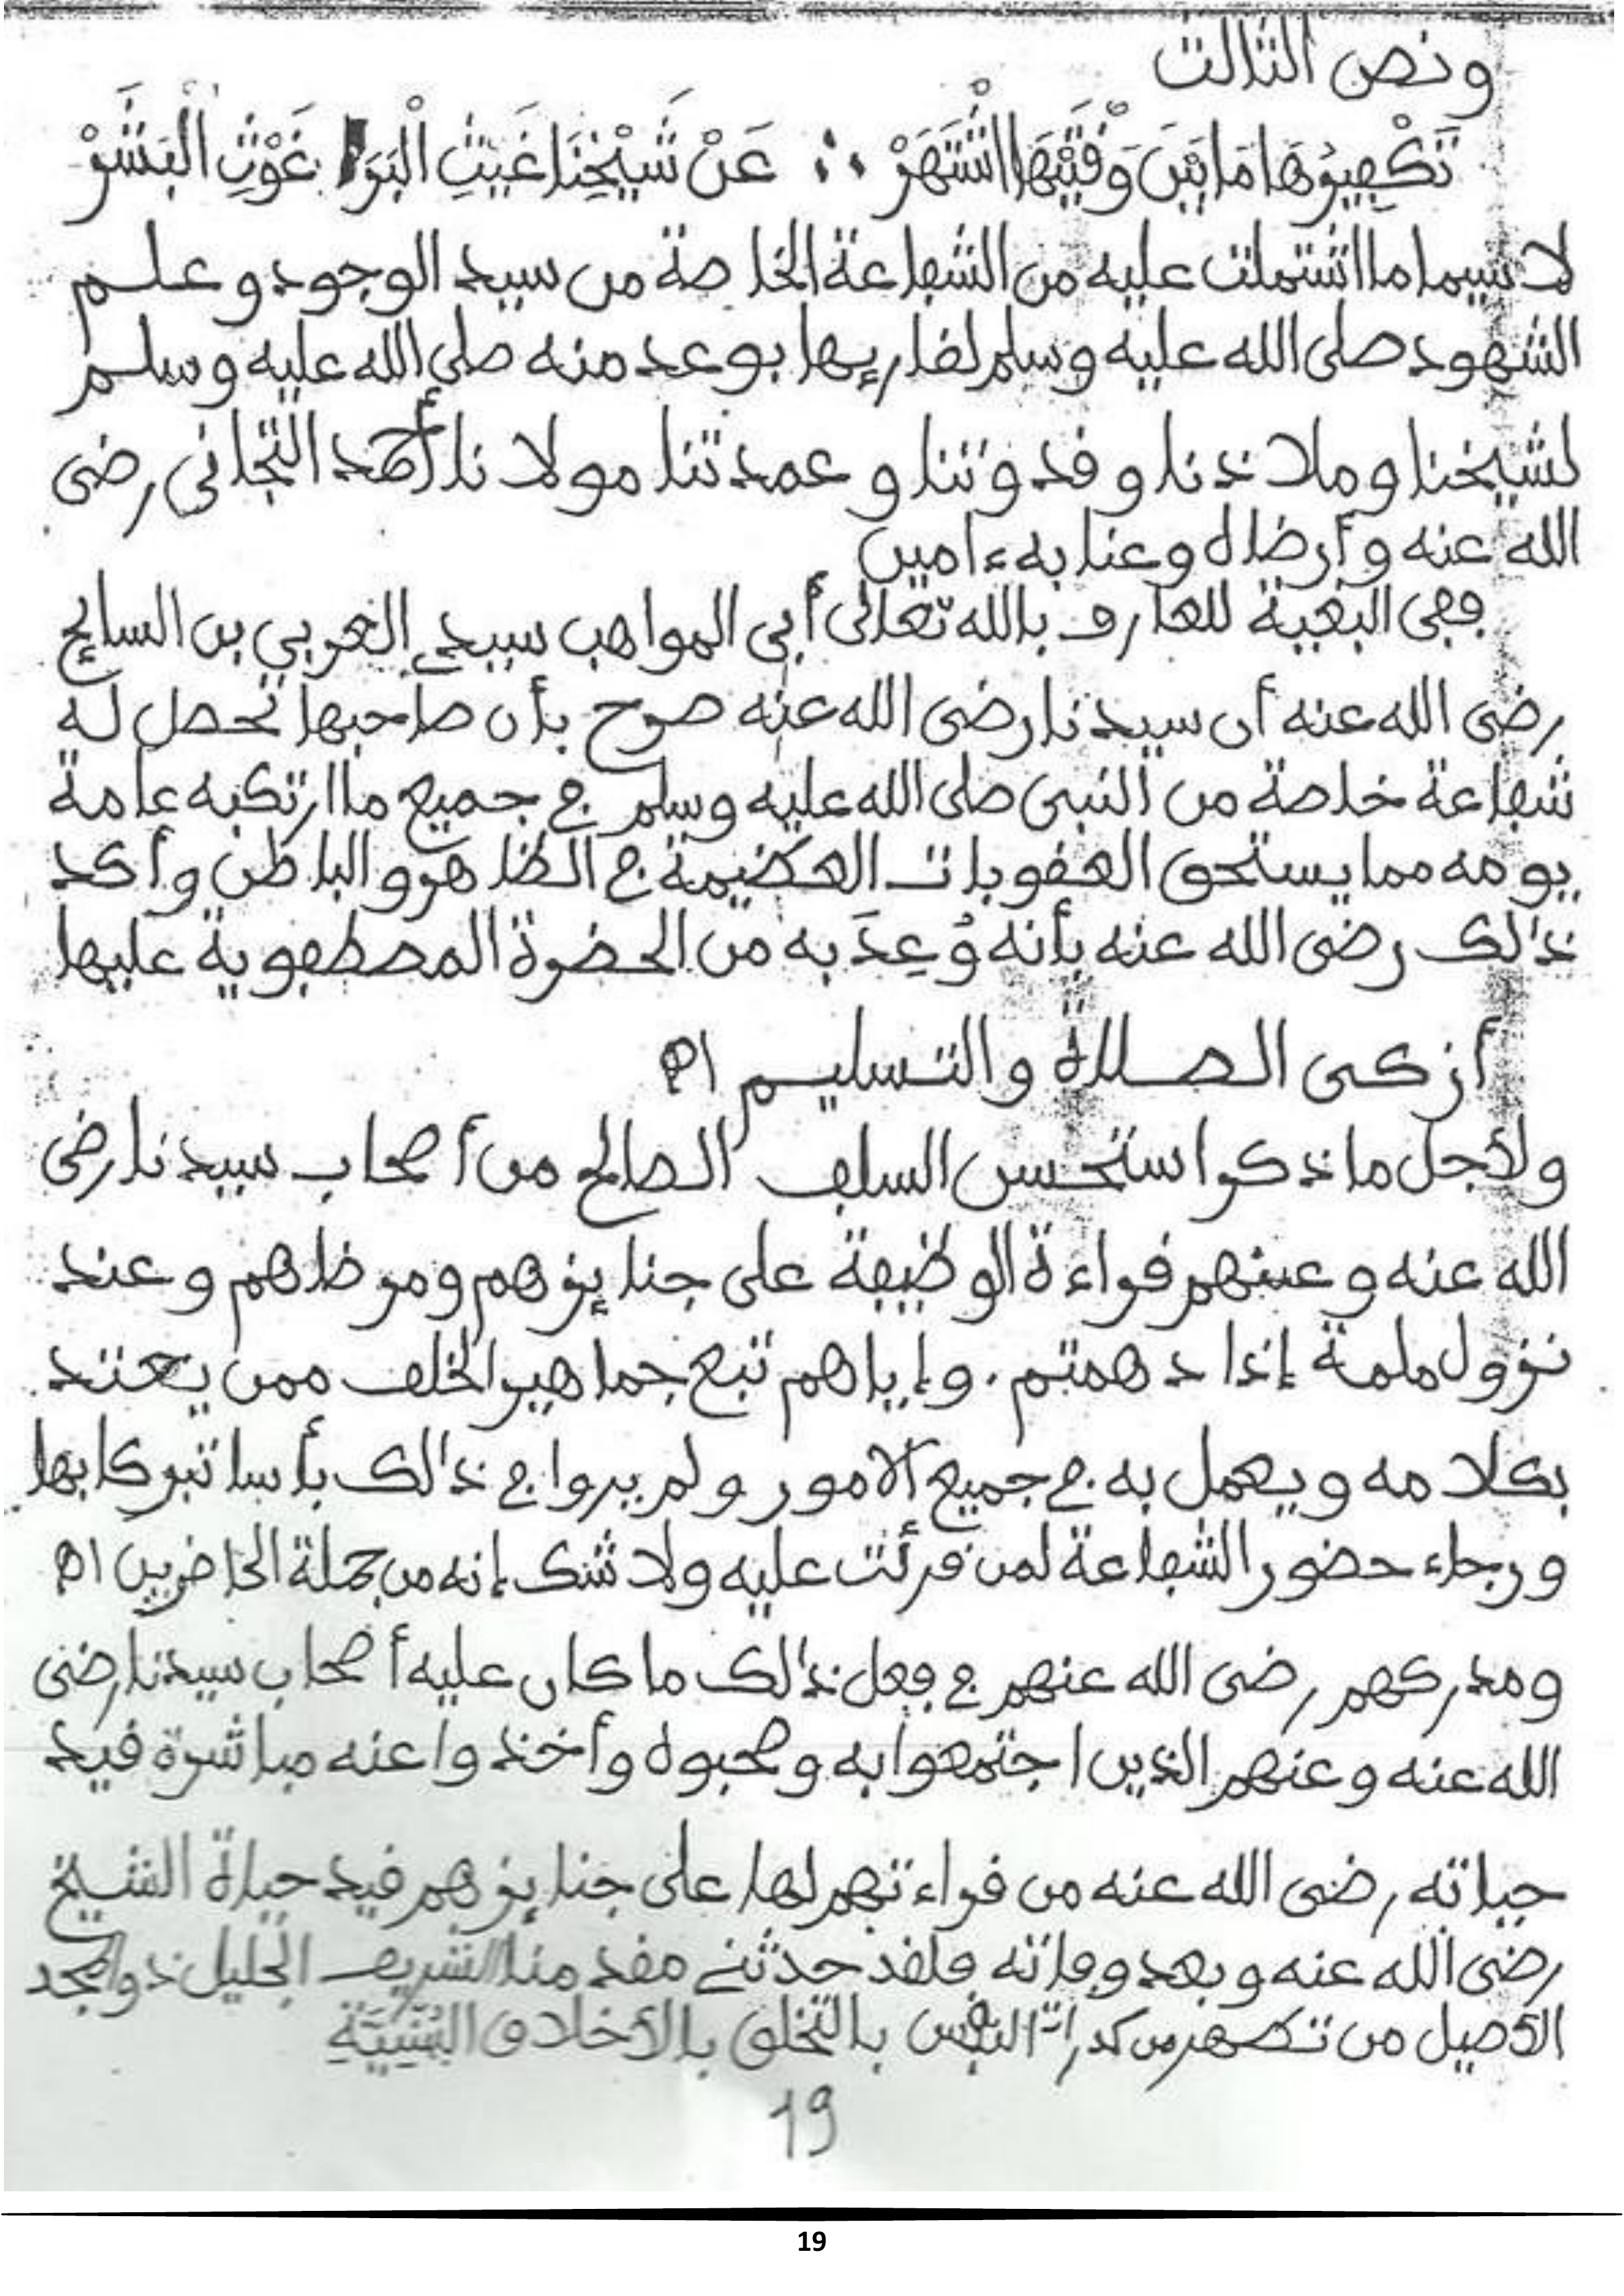 ونص الثالث
تَكْفِيرُهَا مَا بَيْنَ وَقْتَيْهَا اشْتَهَرْ ∴ عَنْ شَيْخِنَا غَيْثِ الْبَرَا غَوْثِ الْبَشَرْ
لا سيما ما اشتملت عليه من الشفاعة الخاصة من سيد الوجود وعلم
الشهود صلى الله عليه وسلم لقاريها بوعد منه صلى الله عليه وسلم
لشيخنا وملاذنا وقدوتنا وعمدتنا مولانا أحمد التجاني رضى
الله عنه وأرضاه وعنا به ءامين
ففى البغية للعارف بالله تعالى أبى المواهب سيدي العربي بن السايح
رضى الله عنه أن سيدنا رضى الله عنه صرح بأن صاحبها تحصل له
شفاعة خاصة من النبى صلى الله عليه وسلم في جميع ما ارتكبه عامة
يومه مما يستحق العقوبات العظيمة في الظاهر والباطن وأكد
ذالك رضى الله عنه بأنه وُعِدَ به من الحضرة المصطفوية عليها
أزكى الصلاة والتسليم اه
ولأجل ما ذكر استحسن السلف الصالح من أصحاب سيدنا رضى
الله عنه وعنهم قراءة الوظيفة على جنايزهم ومرضاهم وعند
نزول ملمة إذا دهمتم. وإياهم تبع جماهير الخلف ممن يعتد
بكلامه ويعمل به في جميع الأمور ولم يروا في ذالك بأسا تبركا بها
ورجاء حضور الشفاعة لمن قرئت عليه ولا شك إنه من جملة الحاضرين اه
ومدركهم رضى الله عنهم في فعل ذالك ما كان عليه أصحاب سيدنا رضى
الله عنه وعنهم الذين اجتمعوا به وصحبوه وأخذوا عنه مباشرة قيد
حياته رضى الله عنه من قراءتهم لها على جنايزهم قيد حياة الشيخ
رضى الله عنه وبعد وفاته فلقد حدثني مقدمنا الشريف الجليل ذو المجد
الأصيل من تطهر من كدرات النفس بالتخلق بالأخلاق السَّنِيَّةِ
19
19